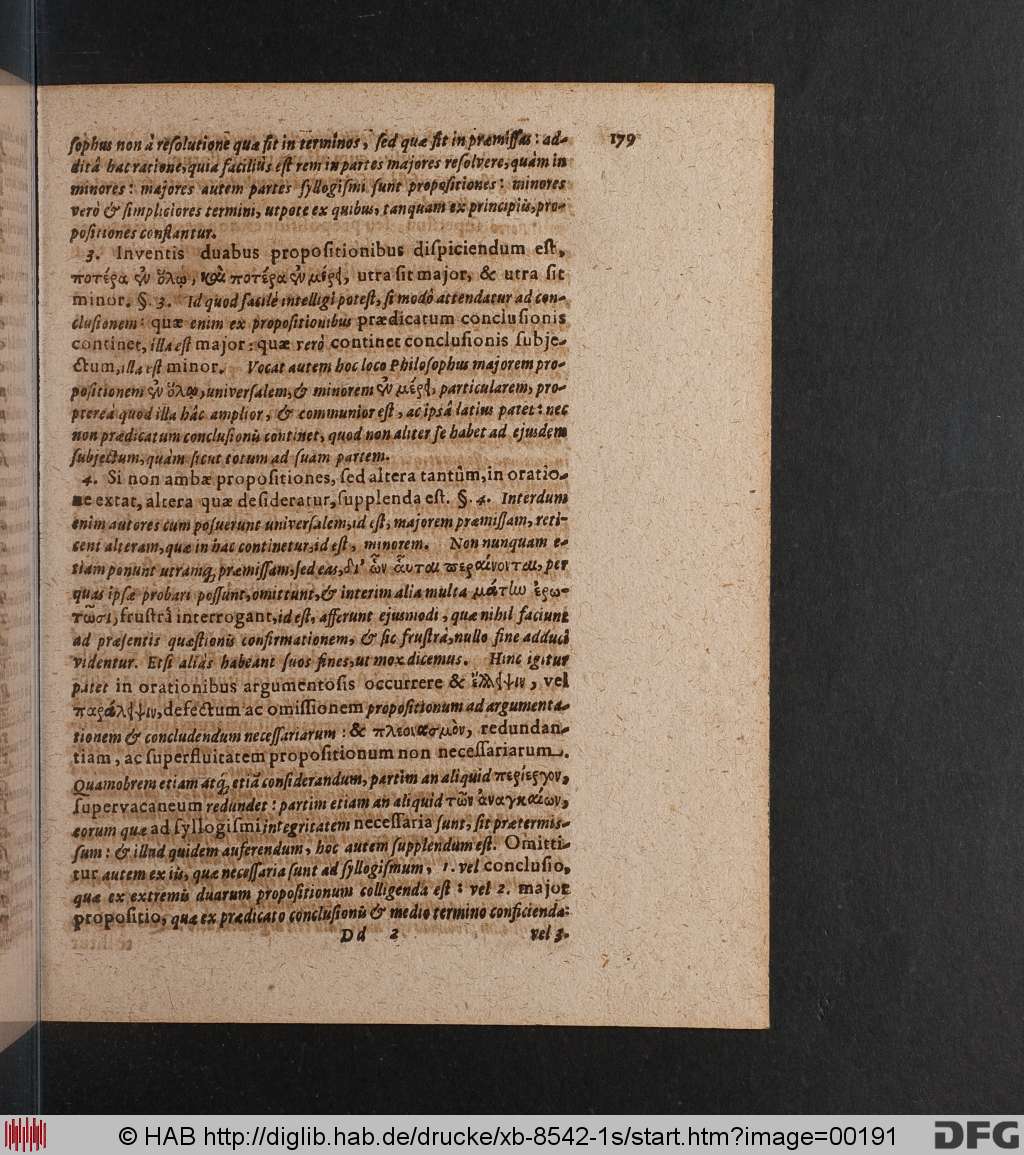 179
sophus non à resolutione quæ fit in terminos, sed quæ fit in præmissas: ad-
ditâ hac ratione, quia facilius est rem in partes majores resolvere, quàm in
minores: majores autem partes syllogismi sunt propositiones: minores
verò & simpliciores termini, utpote ex quibus, tanquam ex principiis, pro-
positiones constantur.
3. Inventis duabus propositionibus dispiciendum est,
ποτέρα ἐν ὅλῳ, καὶ ποτέρα ἐν μέρει, utra sit major, & utra sit
minor. §. 3. Id quod facilè intelligi potest, si modò attendatur ad con-
clusionem: quæ enim ex propositionibus prædicatum conclusionis
continet, illa est major: quæ verò continet conclusionis subje-
ctum, illa est minor. Vocat autem hoc loco Philosophus majorem pro-
positionem ἐν ὅλῳ, universalem, & minorem ἐν μέρει, particularem, pro-
pterea quòd illa hâc amplior, & communior est, ac ipsâ latius patet: nec
non prædicatum conclusionis continet, quod non aliter se habet ad ejusdem
subjectum, quàm sicut totum ad suam partem.
4. Si non ambæ propositiones, sed altera tantùm, in oratio-
ne extat, altera quæ desideratur, supplenda est. §. 4. Interdum
enim autores cum posuerunt universalem, id est, majorem præmissam, reti-
cent alteram, quæ in hac continetur, id est, minorem. Non nunquam e-
tiam ponunt utramq; præmissam, sed eas, δι' ὧν αὗται περαίνονται, per
quas ipsæ probari possunt, omittunt, & interim alia multa μάτην ἐρω-
τῶσι, frustrà interrogant, id est, afferunt ejusmodi, quæ nihil faciunt
ad præsentis quæstionis confirmationem, & sic frustrà, nullo fine adduci
videntur. Etsi aliàs habeant suos fines, ut mox dicemus. Hinc igitur
patet in orationibus argumentosis occurrere & ἔλλειψιν, vel
παράλειψιν, defectum ac omissionem propositionum ad argumenta-
tionem & concludendum necessariarum: & πλεονασμὸν, redundan-
tiam, ac superfluitatem propositionum non necessariarum.
Quamobrem etiam atq; etiã considerandum, partim an aliquid περίεργον,
supervacaneum redundet: partim etiam an aliquid τῶν ἀναγκαίων,
eorum quæ ad syllogismi integritatem necessaria sunt, sit prætermis-
sum: & illud quidem auferendum, hoc autem supplendum est. Omitti-
tur autem ex iis, quæ necessaria sunt ad syllogismum, 1. vel conclusio,
quæ ex extremis duarum propositionum colligenda est: vel 2. major
propositio, quæ ex prædicato conclusionis & medio termino conficienda:
Dd 2 vel 3.
© HAB http://diglib.hab.de/drucke/xb-8542-1s/start.htm?image=00191
DFG